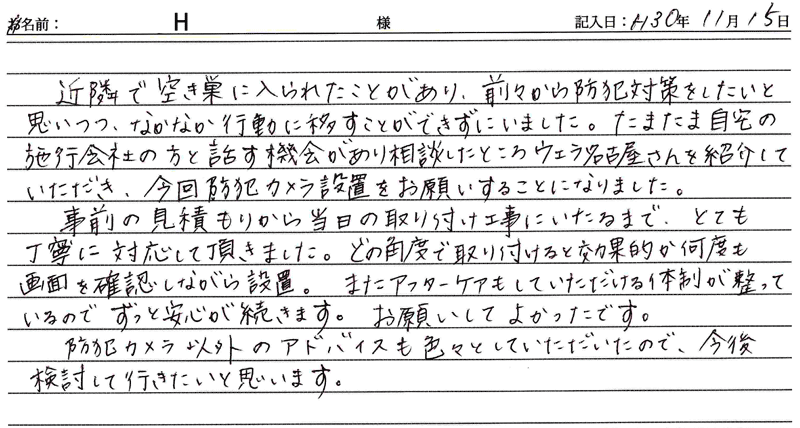 お名前： H 様 記入日：H30年 11月 15日
近隣で空き巣に入られたことがあり、前々から防犯対策をしたいと
思いつつ、なかなか行動に移すことができずにいました。たまたま自宅の
施行会社の方と話す機会があり相談したところウェラ名古屋さんを紹介して
いただき、今回防犯カメラ設置をお願いすることになりました。
事前の見積もりから当日の取り付け工事にいたるまで、とても
丁寧に対応して頂きました。どの角度で取り付けると効果的か何度も
画面を確認しながら設置。またアフターケアもしていただける体制が整って
いるのでずっと安心が続きます。お願いしてよかったです。
防犯カメラ以外のアドバイスも色々としていただいたので、今後
検討して行きたいと思います。